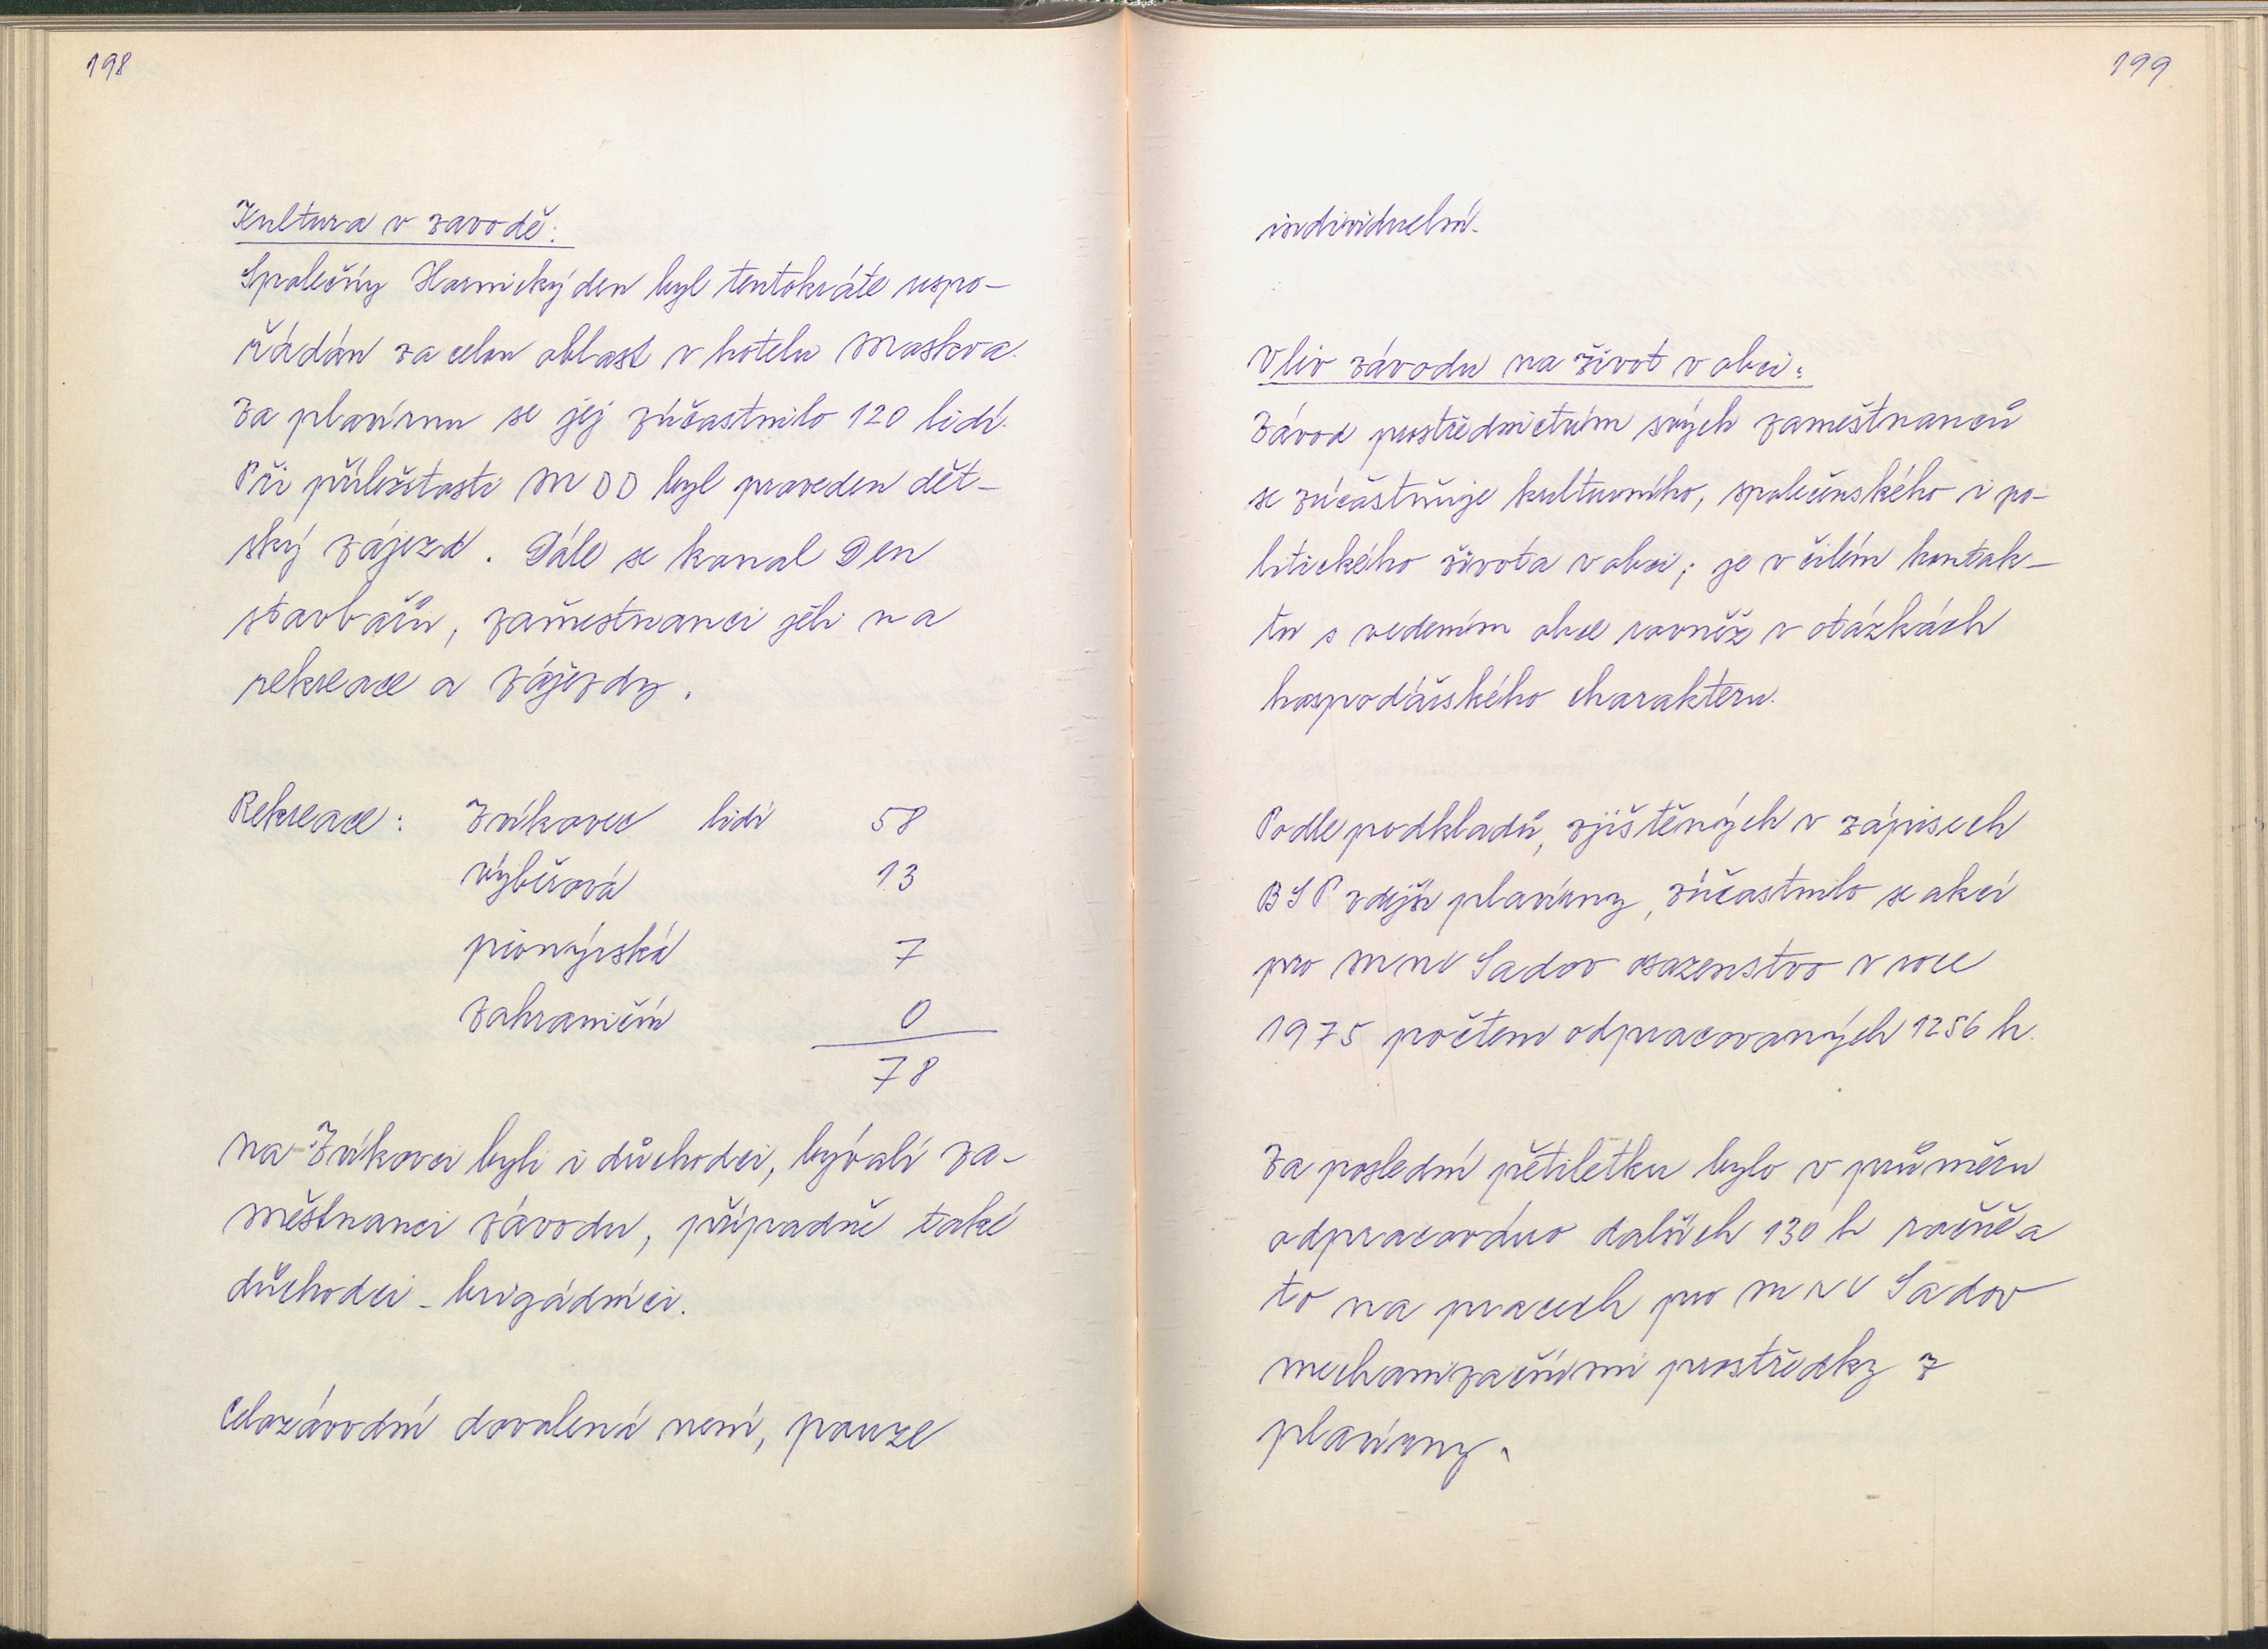 198
Kultura v zavodě:
Společný Hornický den byl tentokráte uspo-
řádán za celou oblast v hotelu Moskva.
Za plavírnu se jej zúčastnilo 120 lidí.
Při příležitosti MDD byl proveden dět-
ský zájezd. Dále se konal Den
stavbařů, zaměstnanci jeli na
rekreace a zájezdy.
Rekreace: Zvíkovec lidí 58
výběrová 13
pionýrská 7
zahraniční 0
78
Na Zvíkovci byli i důchodci, bývalí za-
městnanci závodu, případně také
důchodci - brigádníci.
Celozávodní dovolená není, pouze
199
individuelní.
Vliv závodu na život v obci:
Závod prostřednictvím svých zaměstnanců
se zúčastňuje kulturního, společenského i po-
litického života v obci; je v čilém kontak-
tu s vedením obce rovněž v otázkách
hospodářského charakteru.
Podle podkladů, zjištěných v zápisech
BSP zdejší plavírny, zúčastnilo se akcí
pro MNV Sadov osazenstvo v roce
1975 počtem odpracovaných 1256 h.
Za poslední pětiletku bylo v průměru
odpracováno dalších 130 h ročně a
to na pracech pro MNV Sadov
mechanizačními prostředky z
plavírny.